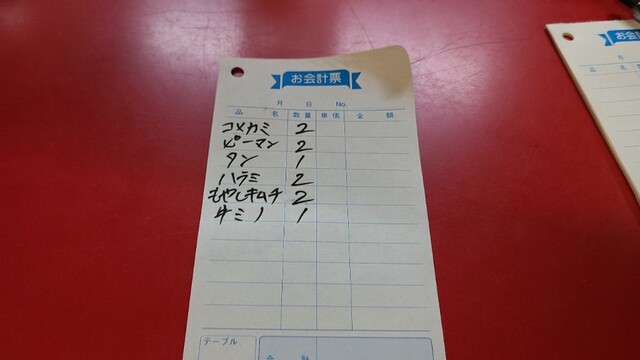 お会計票
月 日 No.
品 名 数量 単価 金 額
コメカミ 2
ピーマン 2
タン 1
ハラミ 2
もやしキムチ 2
牛ミノ 1
テーブル
合 計
お会計
月
品 名